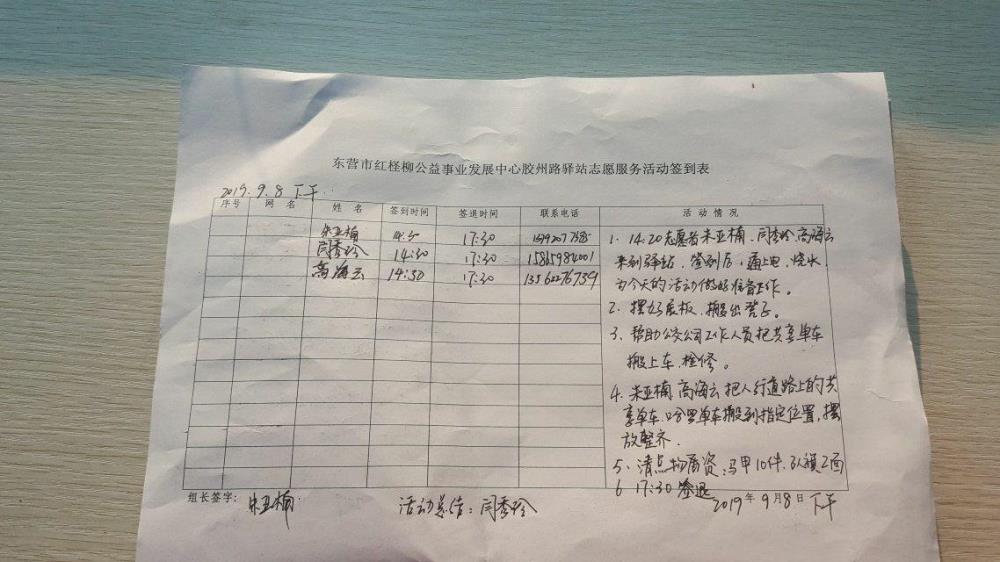 东营市红柽柳公益事业发展中心胶州路驿站志愿服务活动签到表
2019.9.8 下午
序号 网名 姓名 签到时间 签退时间 联系电话 活动情况
朱亚楠 17:30
闫秀玲 14:30 17:30 15865984001
高海云 14:30 17:30 13562276739
1、14:20志愿者朱亚楠、闫秀玲、高海云
来到驿站,签到后,通上电,烧水,
为今天的活动做好准备工作。
2、摆好展板,搬出凳子。
3、帮助公交公司工作人员把共享单车
搬上车,检修。
4、朱亚楠、高海云把人行道路上的共
享单车、哈罗单车搬到指定位置,摆
放整齐.
5、清点物资:马甲10件,队旗2面
6 17:30 签退
组长签字: 朱亚楠 活动总结:闫秀玲 2019年9月8日下午